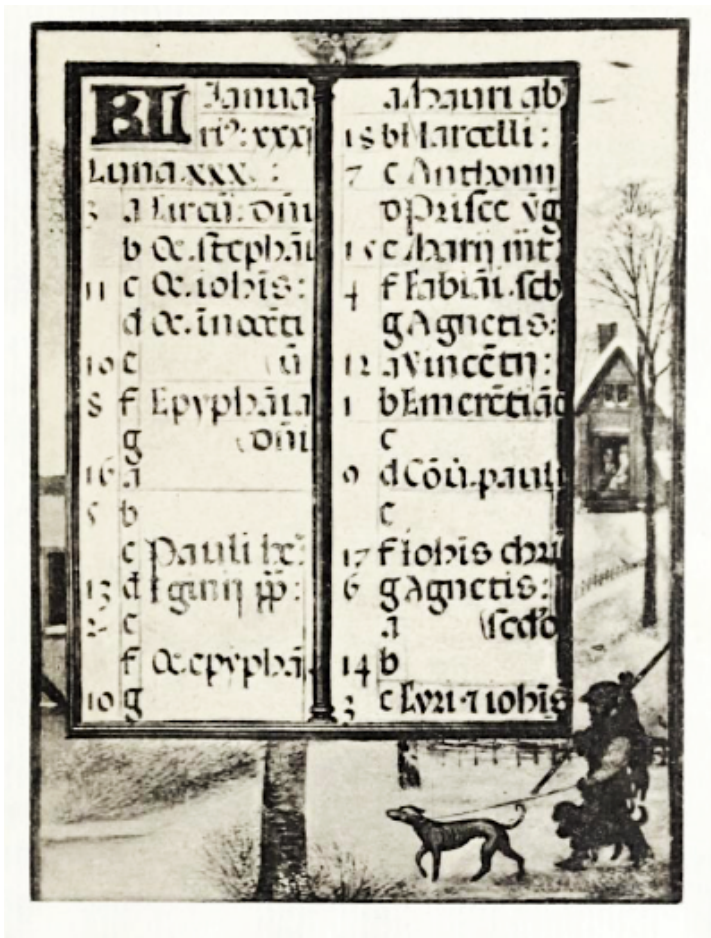 KL Janua
ri9: xxxj
Luna.xxx. :
3 a Circūi: dm̄i
b Oc. stephāi
11 c Oc. iohīs:
d Oc. īnocēti
10 e ū
8 f Epyphāia
g dm̄i
16 a
5 b
c Pauli he
13 d Iginij pp:
2 e
f Oc. epyphā
10 g
a Mauri ab
18 b Marcelli:
7 c Anthonij
d Prisce vg
15 e Marij mr
4 f Fabiāi. seb
g Agnetis:
12 a vincētij:
1 b Emerētiāe
c
9 d Cōu. pauli
e
17 f Iohīs chri
6 g Agnetis:
a scdo
14 b
3 c Cyri ⁊ iohīs